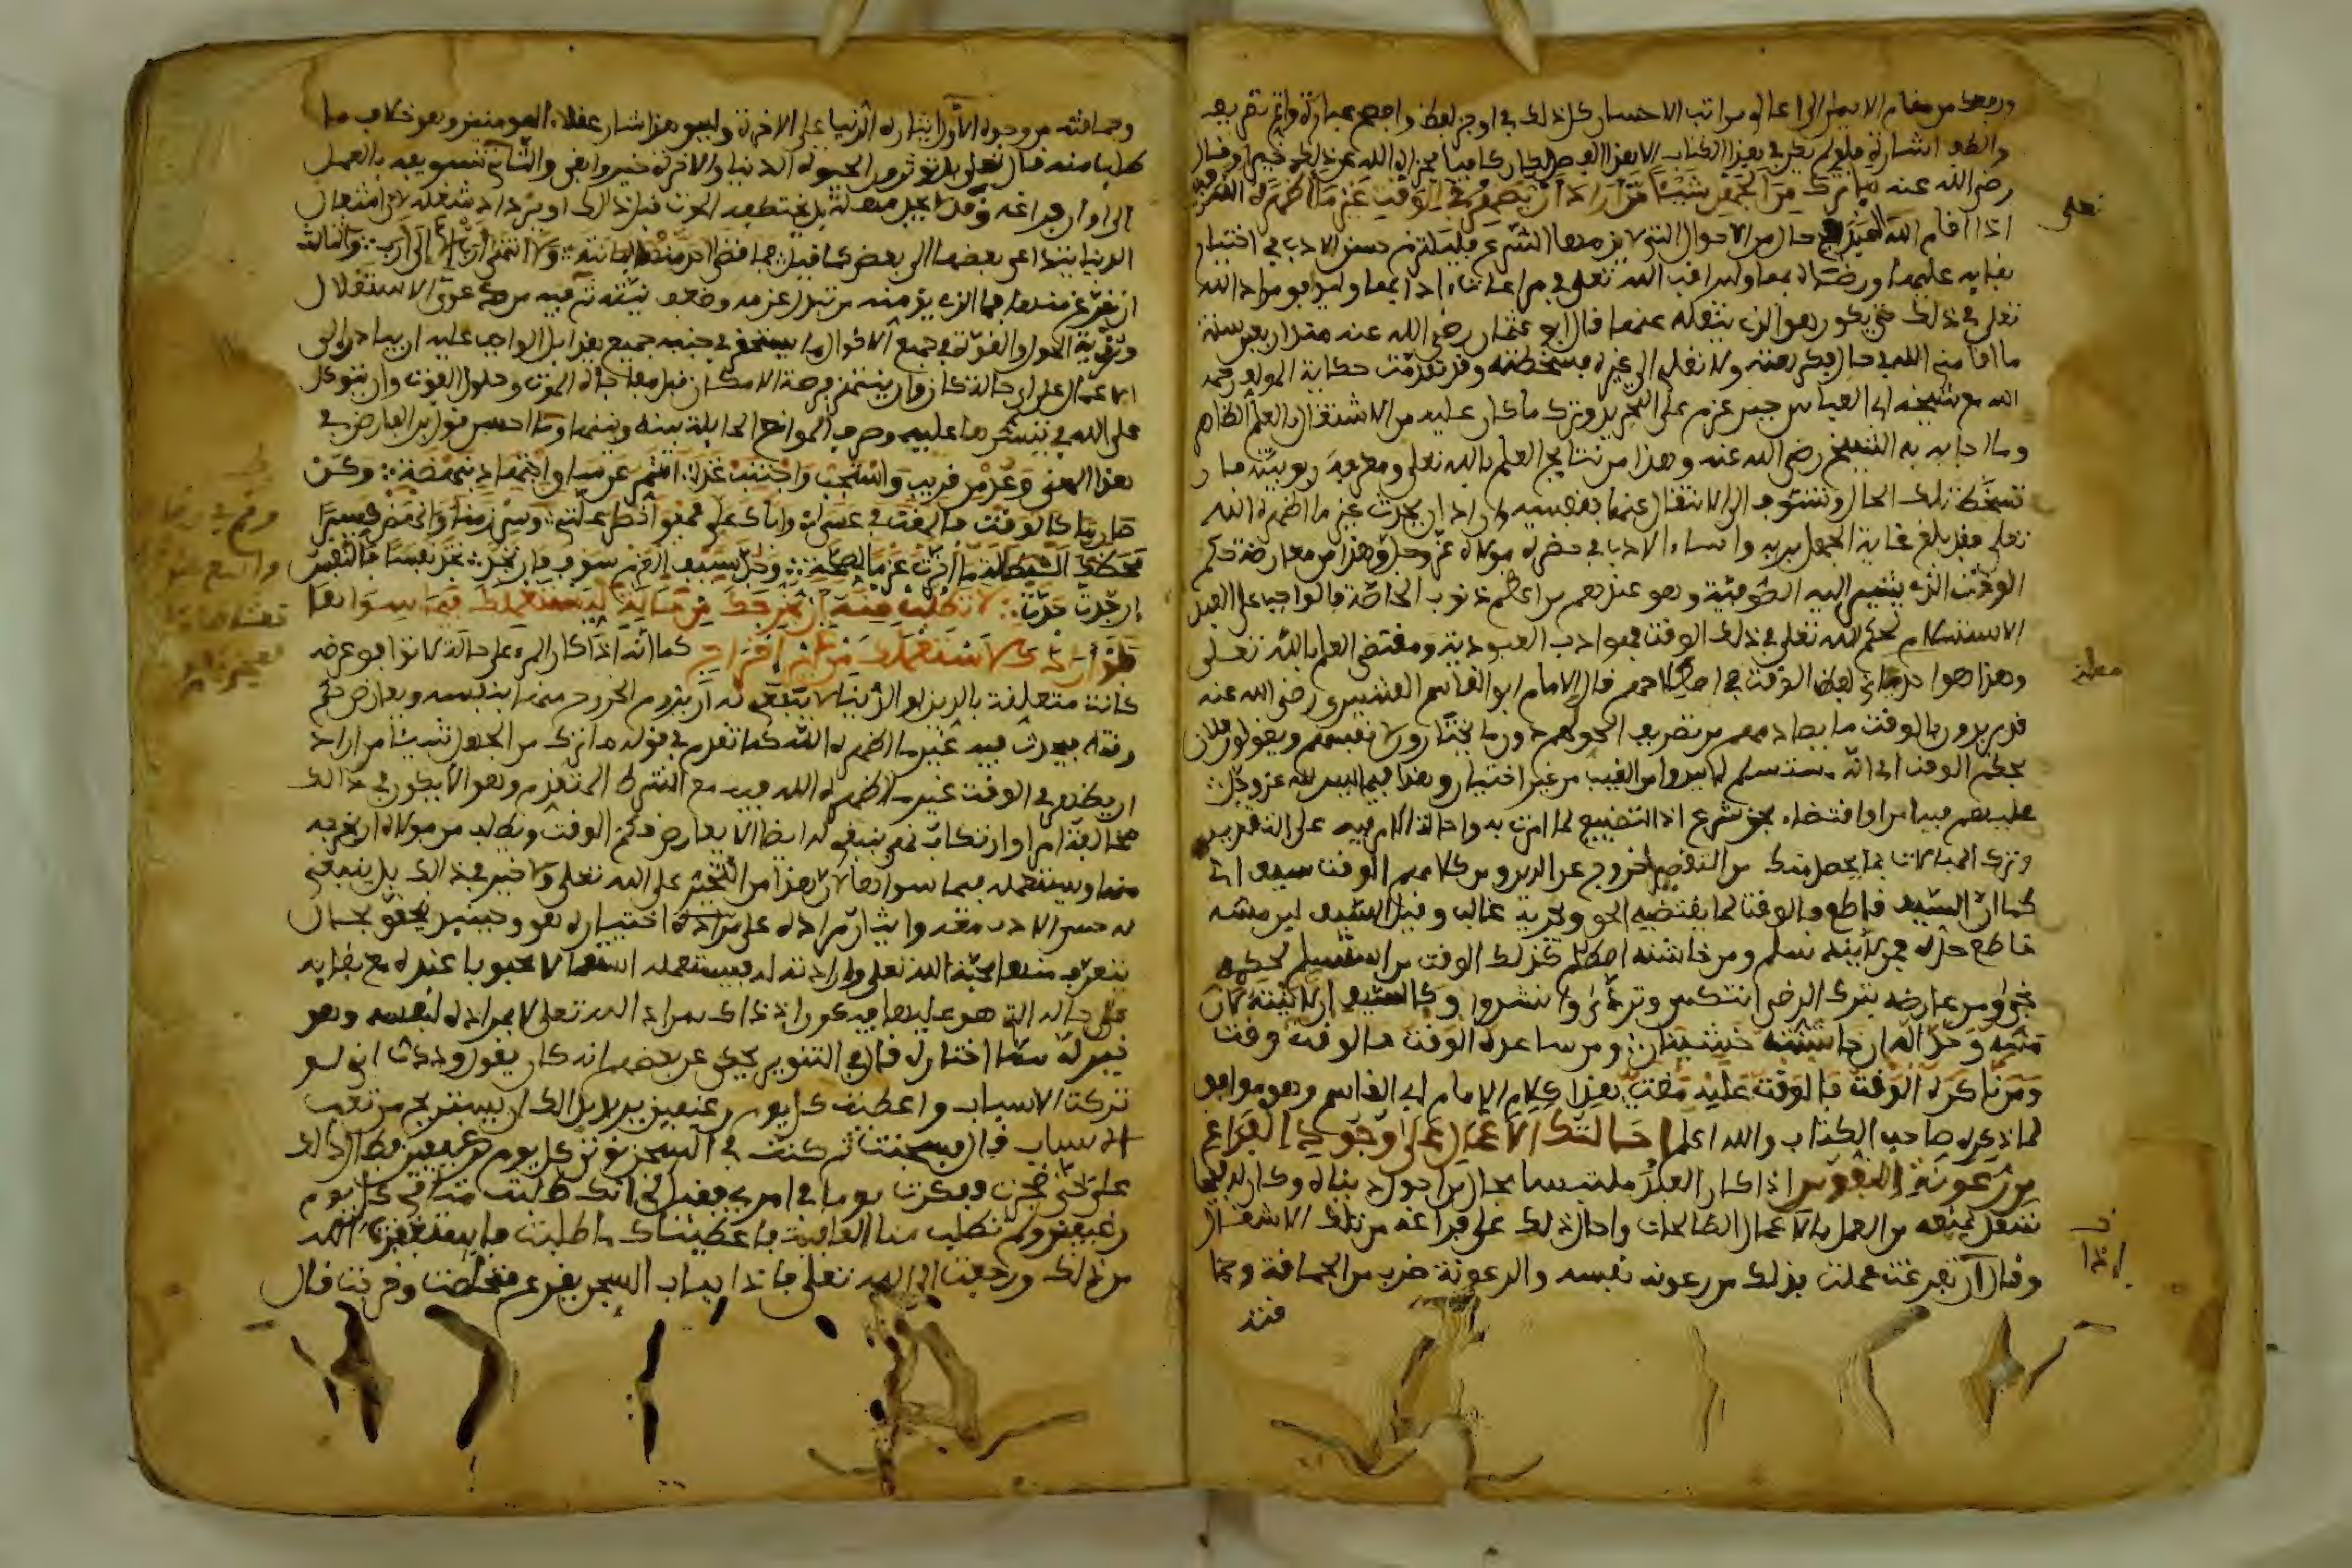 ورفعك من مقام الايمان الى اعالي مراتب الاحسان كل ذلك في اوجز لفظ وافصح عبارة واتم تعريف
والطف اشارة فلو لم يكن في هذا الكتاب الا هذا الفصل لكان كافيا فجزاه الله عن ذلك خيرا وقال
رضي الله عنه ما ترك من الجهل شيئا من اراد ان يحدث في الوقت غير ما اظهره الله فيه
اذا اقام الله العبد في حال من الاحوال التي لا يذمها الشرع فليلتزم حسن الادب في اختيار
بقايه عليها ورضاه بها وليراقب الله تعلى في مراعات ادابها وليوافق مراد الله
تعلى في ذلك حتى يكون هو الذي ينقله عنها قال ابو عثمان رضي الله عنه منذ اربعين سنة
ما اقامني الله في حال فكرهته ولا نقلني الى غيره فسخطته وقد تقدمت حكاية المولف رحمه
الله مع شيخه ابي العباس حين عزم على التجريد وترك ما كان عليه من الاشتغال بالعلم الظاهر
وما اجابه به الشيخ رضي الله عنه وهذا من نتايج العلم بالله تعلى ومعرفة ربوبيته فان
تسخط تلك الحال وتشوف الى الانتقال عنها بنفسه واراد ان يحدث غير ما اظهره الله
تعلى فقد بلغ غاية الجهل بربه واساء الادب في حضرة مولاه عز وجل وهذا من معارضة حكم
الوقت الذي يشير اليه الصوفية وهو عندهم من اعظم ذنوب الخاصة فالواجب على العبد
الاستسلام لحكم الله تعلى في ذلك الوقت فهو ادب العبودية ومقتضى العلم بالله تعلى
وهذا هو احد معاني لفظ الوقت في اصطلاحهم قال الامام ابو القاسم القشيري رضي الله عنه
قد يريدون بالوقت ما يصادفهم من تصريف الحق لهم دون ما يختارون لانفسهم ويقولون فلان
بحكم الوقت اي انه مستسلم لما يبدو من الغيب من غير اختيار وهذا فيما ليس لله عز وجل
عليهم فيه امر او اقتضاء بحق شرع اذ التضييع لما امرت به واحالة الامر فيه على التقدير
وترك المبالات بما يحصل منك من التقصير خروج عن الدين ومن كلامهم الوقت سيف اي
كما ان السيف قاطع فالوقت لما يقضيه الحق ويجريه غالب وقيل السيف لين مسه
قاطع حده فمن لاينه سلم ومن خاشنه اصطلم كذلك الوقت من استسلم لحكمه
نجى ومن عارضه بترك الرضى انتكس وتردى وانشدوا وكالسيف ان لاينته لان
مسه وحداه ان خاشنته خشنان ومن ساعده الوقت فالوقت وقت
ومن ناكره الوقت فالوقت عليه مقت هذا كلام الامام ابي القاسم وهو موافق
لما ذكره صاحب الكتاب والله اعلم احالتك الاعمال على وجود الفراغ
من رعونة النفوس اذا كان العبد متلبسا بحال من احوال دنياه وكان له فيها
شغل يمنعه من العمل بالاعمال الصالحات واحال ذلك على فراغه من تلك الاشغال
وقال ان تفرغت عملت فذلك من رعونة نفسه والرعونة ضرب من الحماقة وحما
قته
تعلى
معاني
اذا
وحماقته من وجوه الاول ايثاره الدنيا على الاخرة وليس هذا شان عقلاء المومنين وهو خلاف ما
طلب منه قال تعلى بل توثرون الحيوة الدنيا والاخرة خير وابقى والثاني تسويفه بالعمل
الى اوان فراغه وقد لا يجد مهلة بل يختطفه الموت قبل ذلك او يزداد شغله لان اشغال
الدنيا يتداعى بعضها الى بعض كما قيل فما قضى احد منها لبانته ولا انتهى ارب الا الى ارب والثالث
ان يفرغ منها فما الذي يومنه من تبدل عزمه وضعف نيته ثم فيه من دعوى الاستقلال
وروية الحول والقوة في جميع الاحوال ما يستحقر في جنبه جميع هذا بل الواجب عليه ان يبادر الى
الاعمال على اي حال كان وان ينتهز فرصة الامكان قبل مفاجاة الموت وحلول الفوت وان يتوكل
على الله في تيسيرها عليه وصرف الموانع الحايلة بينه وبينها وما احسن قول ابن الفارض في
هذا المعنى وعد من قريب واستجب واجتنب غدا وشمر عن ساق اجتهاد بنهضة وكن
صارما كالوقت فالمقت في عسى واياك على فهو اخطر علة وسر زمنا وانهض كسيرا
فحظك البطالة ما اخرت عزما لصحة وجذ بسيف العزم سوف فان تجد تجد نفسا فالنفس
ان جدت جدت لا تطلب منه ان يخرجك من حالة ليستعملك فيما سواها
فلو اراد لاستعملك من غير اخراج كما انه اذا كان المرء على حالة لا توافق غرضه
كانت متعلقة بالدين او الدنيا لا ينبغي له ان يروم الخروج منها بنفسه ويعارض حكم
وقته فيحدث فيه غير ما اظهره الله كما تقدم في قوله ما ترك من الجهل شيئا من اراد
ان يظهر في الوقت غير ما اظهره الله فيه مع الشرط المتقدم وهو الا يكون في ذالك
مخالفة امر او ارتكاب نهي ينبغي له ايضا الا يعارض حكم الوقت ويطلب من مولاه ان يخرجه
منها ويستعمله فيما سواها لان هذا من التخير على الله تعلى ولا خير في ذالك بل ينبغي
له حسن الادب معه وايثار مراده على مراده اختياره هو وحينيذ يتحقق بحال
يتعرف منها محبة الله تعلى وارادته له فيستعمله استعمالا محبوبا عنده مع بقايه
على حاله التي هو عليها فيكون اذ ذاك بمراد الله تعلى لا بمراده لنفسه وهو
خير له مما اختاره قال في التنوير يحكى عن بعضهم انه كان يقول وددت اني لو
تركت الاسباب واعطيت كل يوم رغيفين يريد بذالك ان يستريح من تعب
الاسباب قال فسجنت ثم كنت في السجن يوتى كل يوم برغيفين فطال ذالك
علي حتى ضجرت ففكرت يوما في امري فقيل لي انك طلبت منا في كل يوم
رغيفين ولم تطلب منا العافية فاعطيناك ما طلبت فاستغفرت الله
من ذلك ورجعت الى الله تعلى فاذا بباب السجن يقرع فتخلصت وخرجت قال